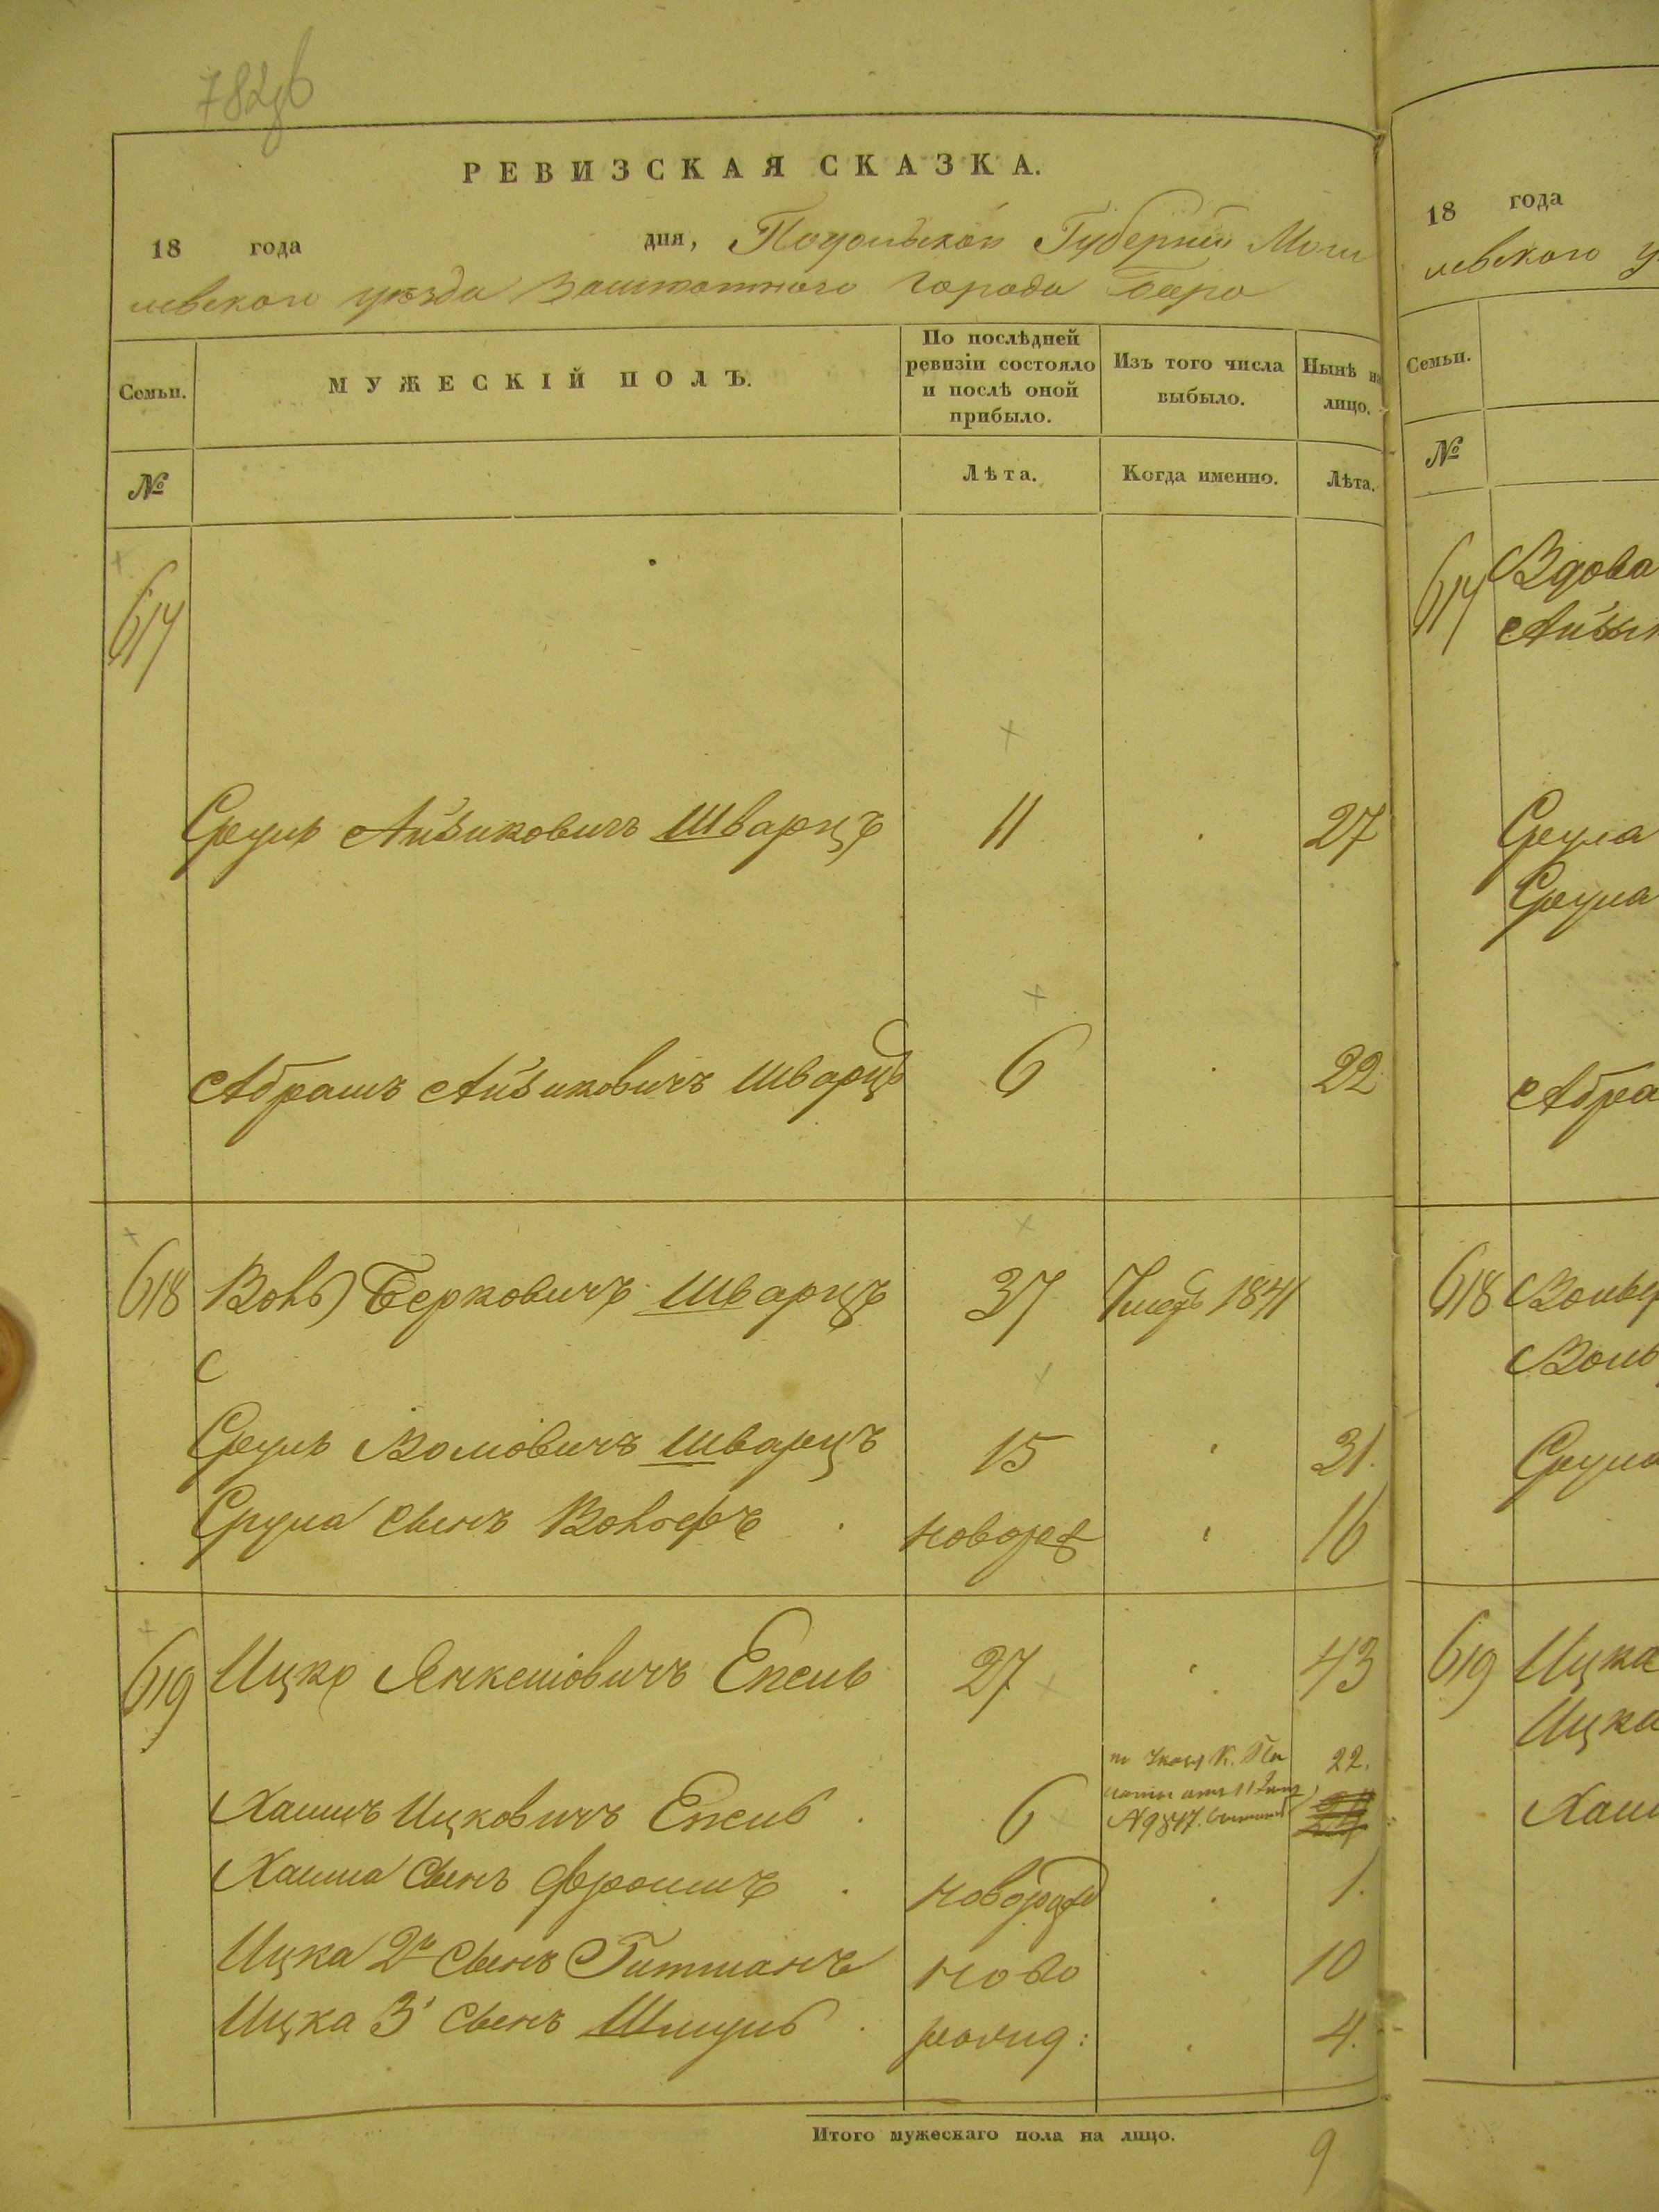 РЕВИЗСКАЯ СКАЗКА.
18 года дня, Подольской Губерніи Моги
левскаго уѣзда Заштатнаго города Баро
Семьи.
МУЖЕСКІЙ ПОЛЪ.
По послѣдней ревизіи состояло и послѣ оной прибыло.
Изъ того числа выбыло.
Нынѣ на лицо.
№
Лѣта.
Когда именно.
Лѣта.
614
Сруль Айзиковичъ Шварцъ 11 27
Абрамъ Айзиковичъ Шварцъ 6 22
618 Воль Берковичъ Шварцъ 37 Умеръ 1841
С
Сруль Волювичъ Шварцъ 15 31.
Срула сынъ Вольфъ новорож 16
619 Ицко Янкелювичъ 27 43
22.
Хаимъ Ицковичъ 6
Хаима сынъ Фроимъ новорож 1.
Ицка 2й сынъ Гитманъ ново 10
Ицка 3й сынъ Шмуль рожд: 4.
Итого мужескаго пола на лицо. 9
18 года
левскаго у
Семьи.
№
614 Вдова
Айзик
Срула
Срула
Абра
618 Вольф
Воль
Срула
619 Ицка
Ицка
Хаим